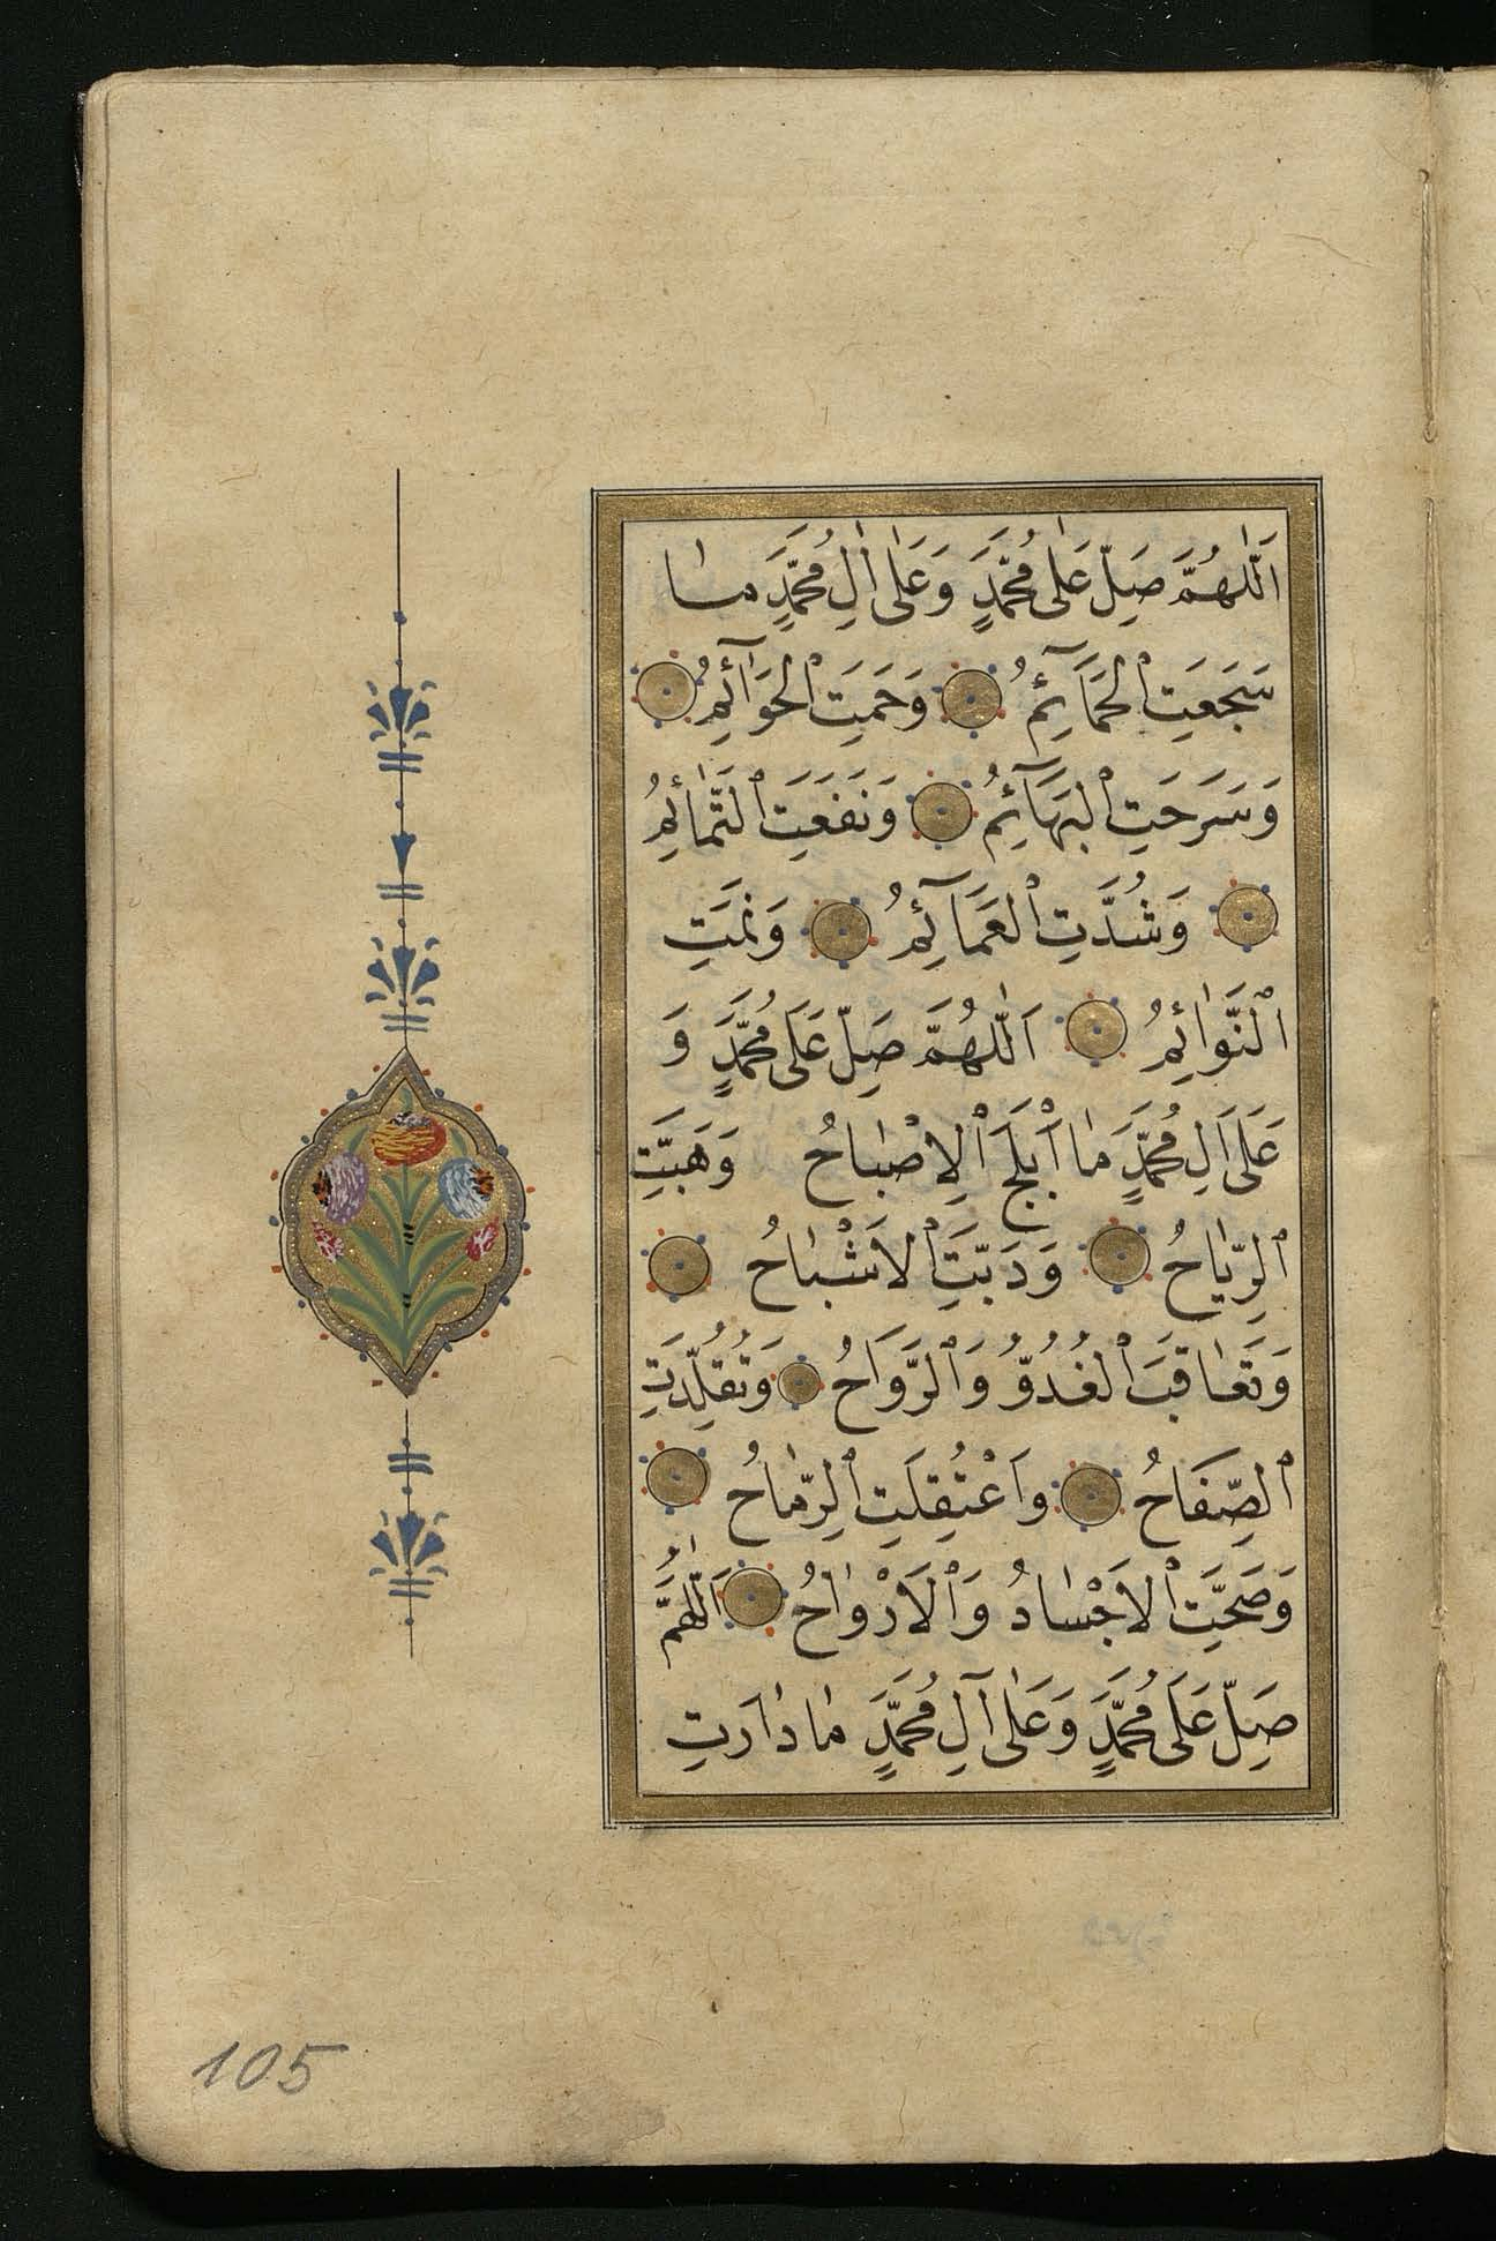 اَللّٰهُمَّ صَلِّ عَلٰى مُحَمَّدٍ وَعَلٰى اٰلِ مُحَمَّدٍ مٰا
سَجَعَتِ الْحَمَآئِمُ وَحَمَتِ الْحَوَآئِمُ
وَسَرَحَتِ الْبَهَآئِمُ وَنَفَعَتِ التَّمٰائِمُ
وَشُدَّتِ الْعَمَآئِمُ وَنَمَتِ
النَّوٰائِمُ اَللّٰهُمَّ صَلِّ عَلَى مُحَمَّدٍ وَ
عَلَى اَلِ مُحَمَّدٍ مٰا اَبْلَجَ الْاِصْبٰاحُ وَهَبَّتِ
الرِّيٰاحُ وَدَبَّتِ الْاَشْبٰاحُ
وَتَعٰاقَبَ الْغُدُوُّ وَالرَّوَاحُ وَتُقُلِّدَتِ
الصِّفَاحُ وَاعْتُقِلَتِ الرِّمٰاحُ
وَصَحَّتِ الْاَجْسٰادُ وَالْاَرْوٰاحُ اَللّٰهُمَّ
صَلِّ عَلَى مُحَمَّدٍ وَعَلٰى آلِ مُحَمَّدٍ مٰا دٰارَتِ
105